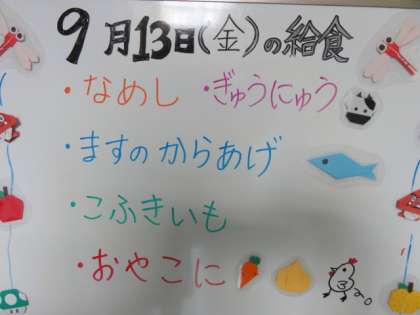 9月13日(金)の給食
・なめし ・ぎゅうにゅう
・ますのからあげ
・こふきいも
・おやこに